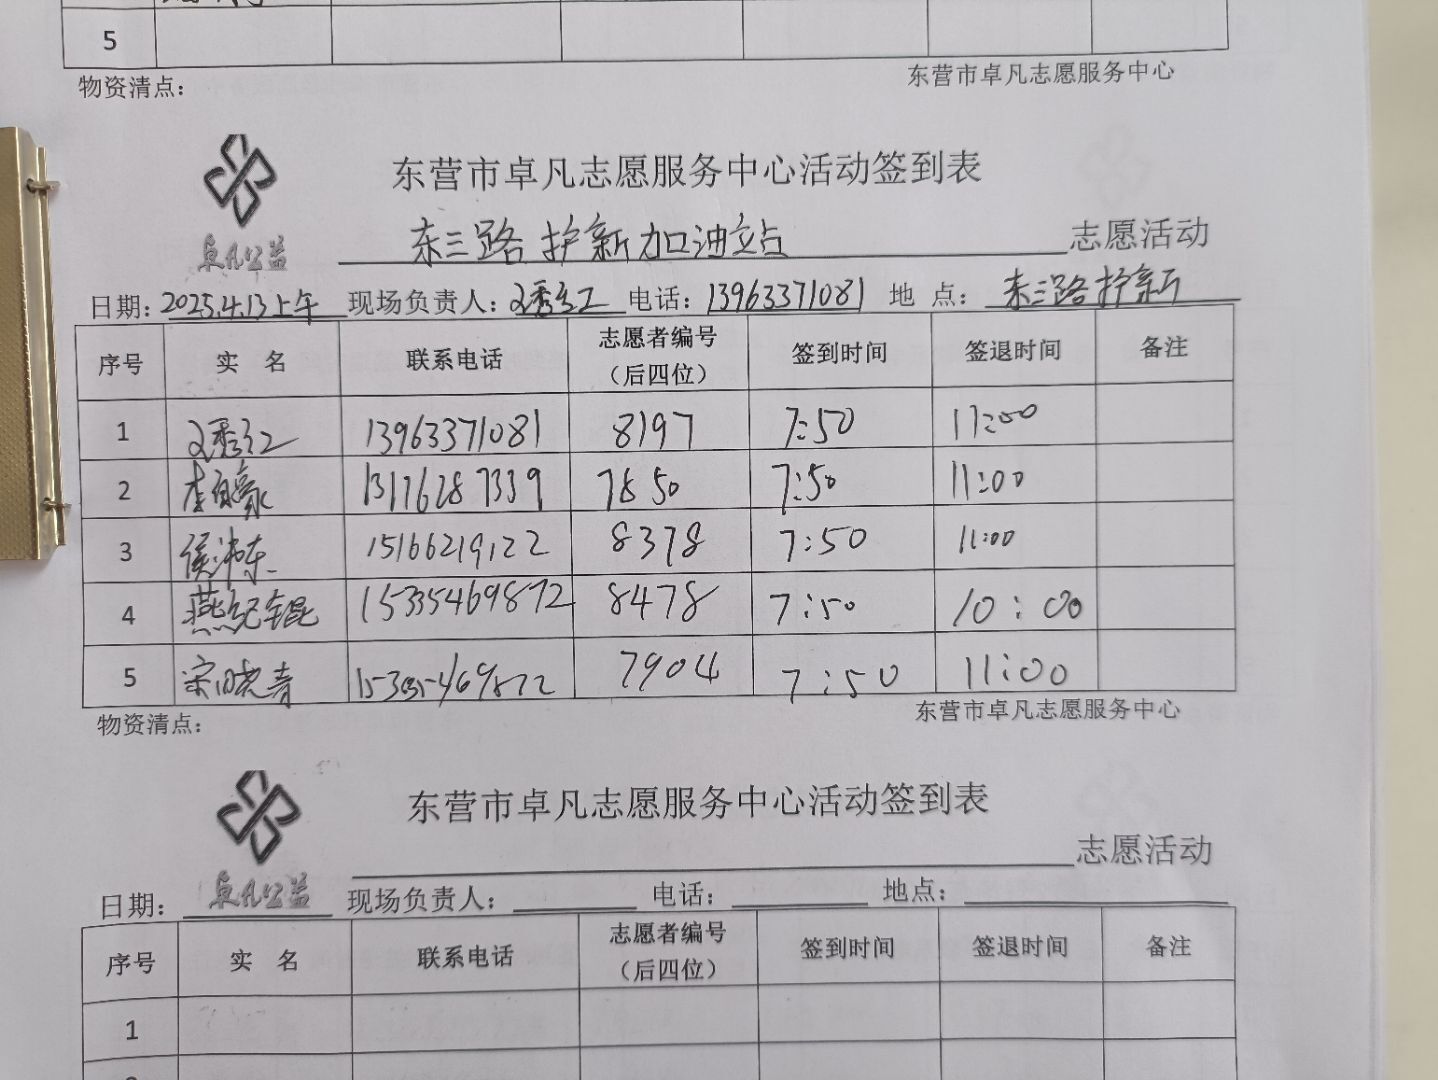 5
物资清点：
东营市卓凡志愿服务中心
东营市卓凡志愿服务中心活动签到表
卓凡公益
东三路护新加油站 志愿活动
日期：2025.4.13上午 现场负责人：秀红 电话：13963371081 地 点：东三路护新
序号 实 名 联系电话 志愿者编号（后四位） 签到时间 签退时间 备注
1 秀红 13963371081 8197 7:50 11:00
2 李自豪 13176287339 7850 7:50 11:00
3 侯沛东 15166219122 8378 7:50 11:00
4 燕纪锟 15335469872 8478 7:50 10:00
5 宋晓青 15335469872 7904 7:50 11:00
物资清点：
东营市卓凡志愿服务中心
东营市卓凡志愿服务中心活动签到表
志愿活动
卓凡公益
日期： 现场负责人： 电话： 地点：
序号 实 名 联系电话 志愿者编号（后四位） 签到时间 签退时间 备注
1